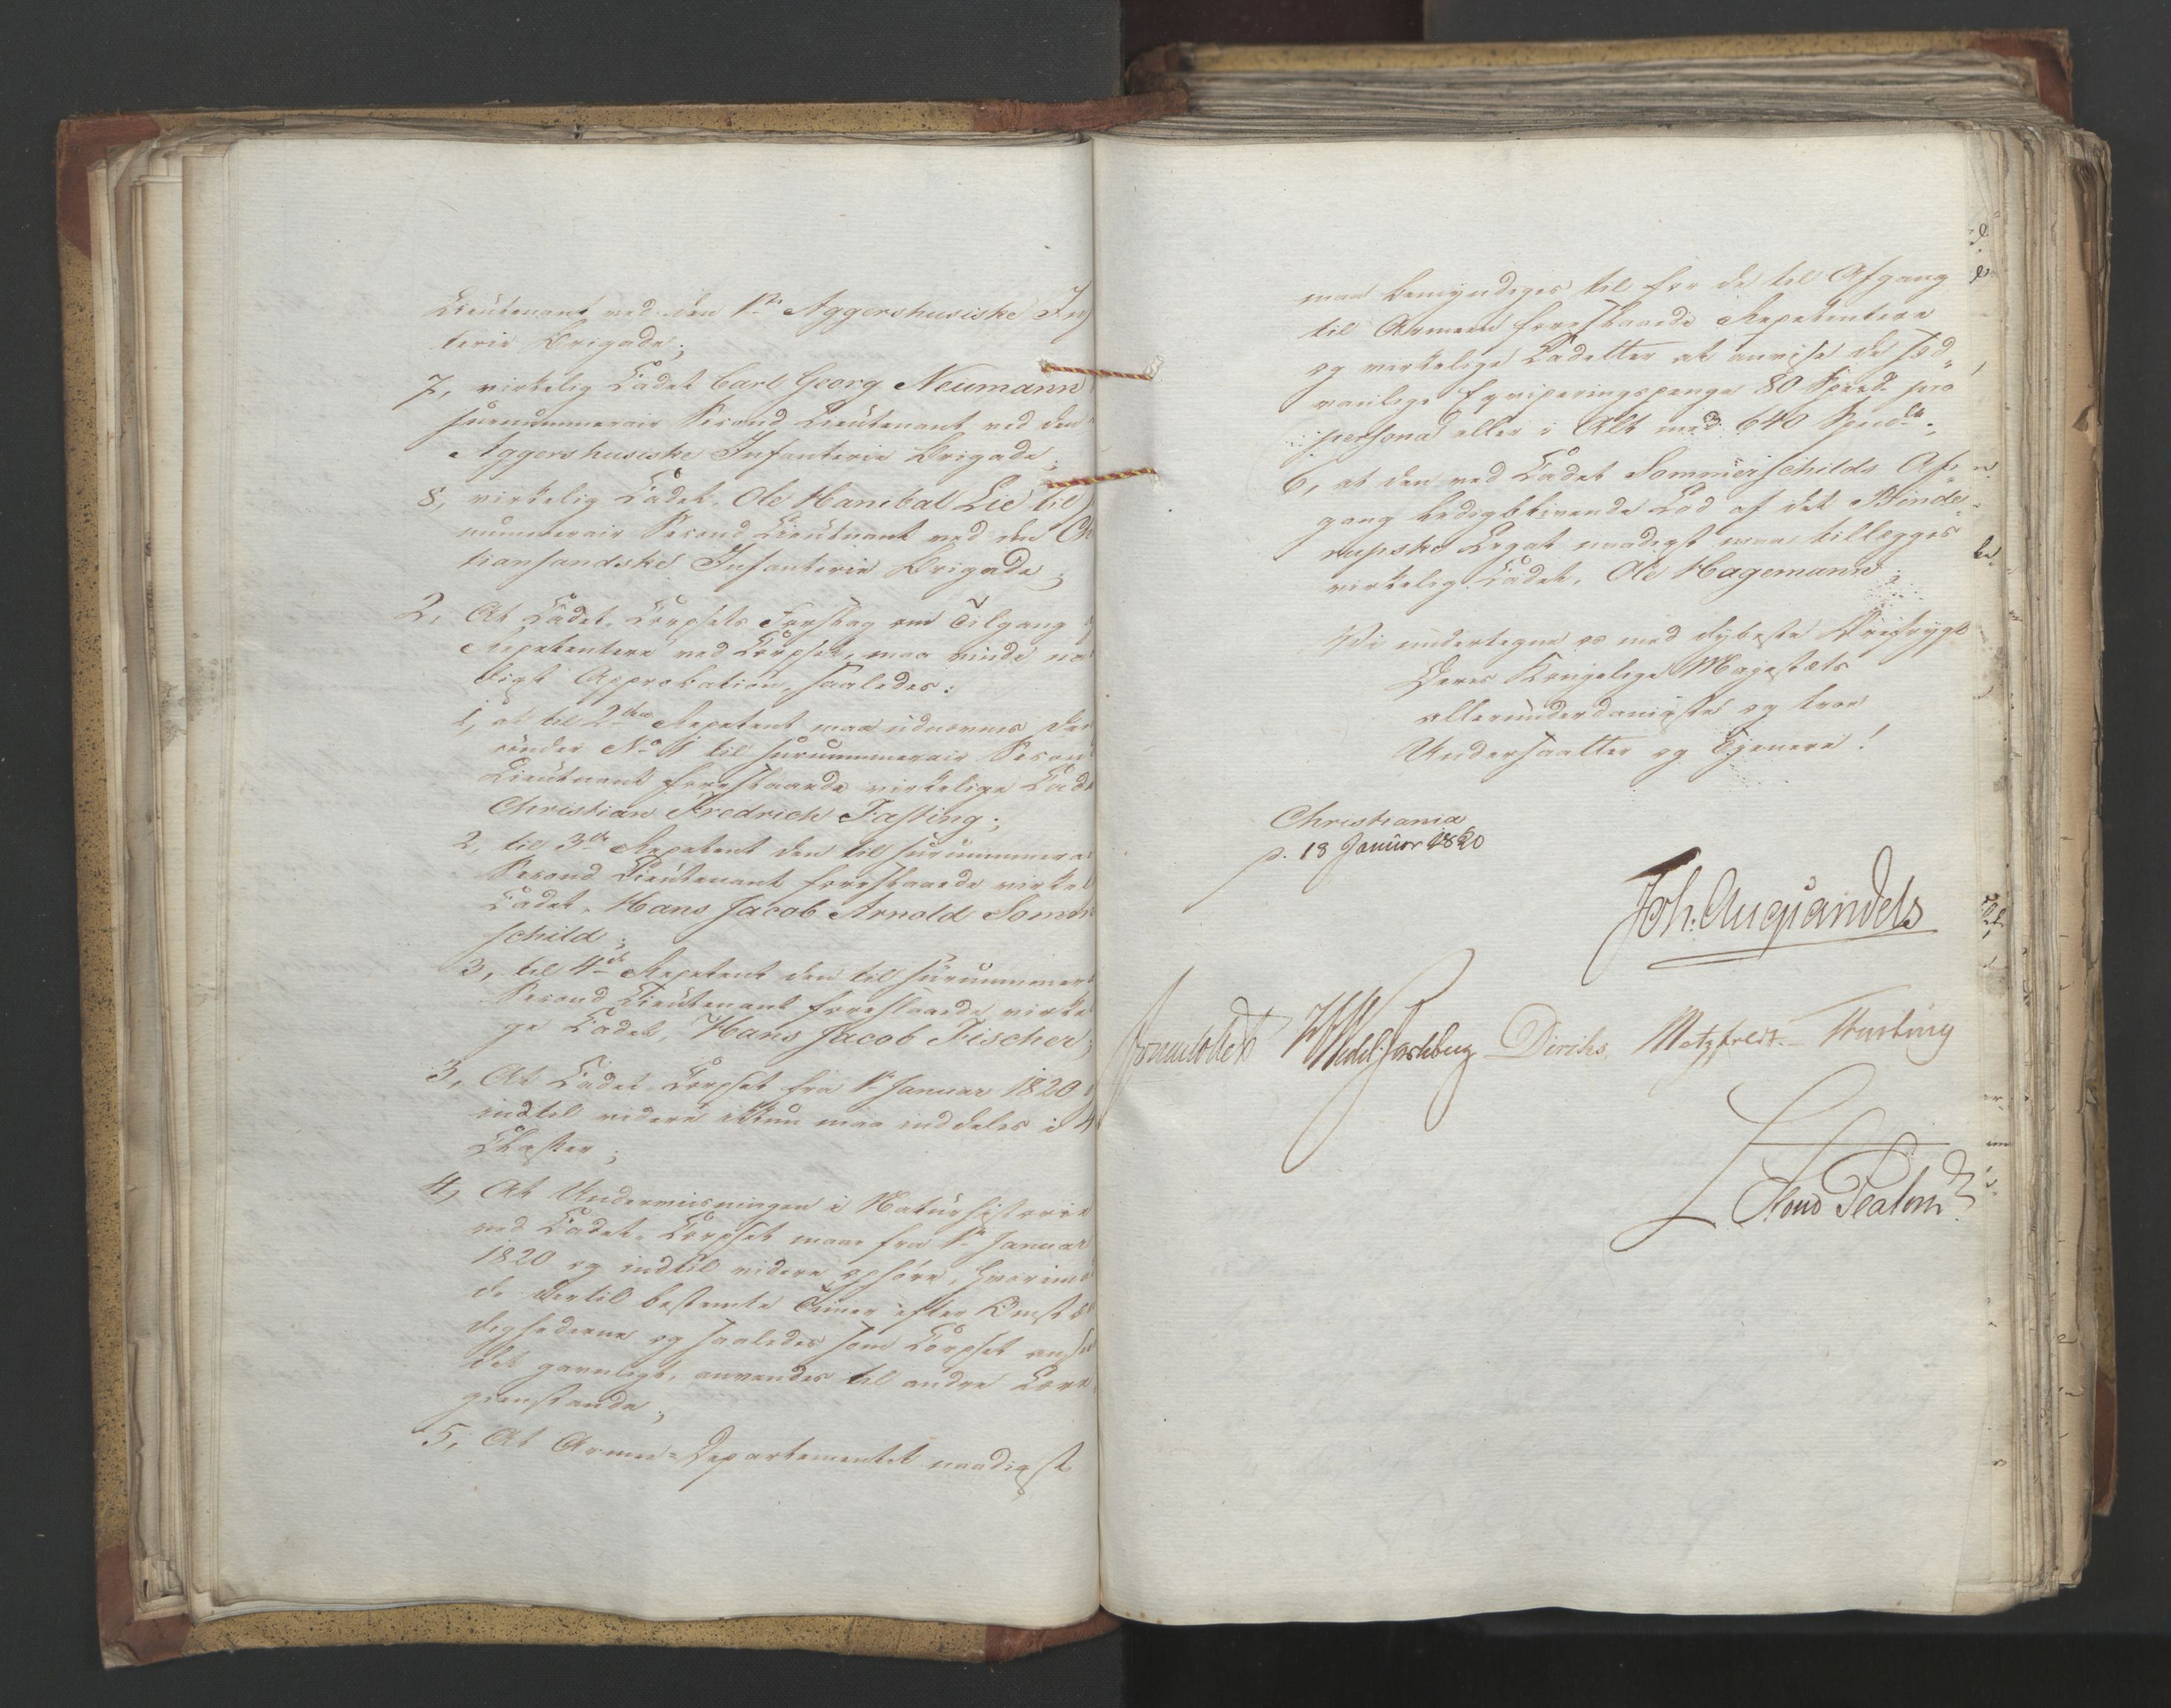 Lieutenant ved den 1ste Aggershusiske In
terie Brigade;
7, virkelig Cadet Carl Georg Neumann
surnummerair Second Lieutenant ved den
Aggershusiske Infanterie Brigade;
8, virkelig Cadet, Ole Hanibal Lie til
nummerair Second Lieutnant ved den Ch
tiansandske Infanterie Brigade;
2, At Cadet-Corpsets Forslag om Tilgang
Repetentere ved Corpset, maa vinde na
digst Approbation, saaledes:
1, at til 2den Repetent maa udnævnes den
under No 1 til surnummerair Second
Lieutnant foreslaaede virkelige Cadet
Christian Fredrich Fasting;
2, til 3de Repetent den til surnummera
Second Lieutenant foreslaaede virkel
Cadet, Hans Jacob Arnold Somm
schild;
3, til 4de Repetent den til surnummer
Second Lieutenant foreslaaede virke
ge Cadet, Hans Jacob Fischer;
3, At Cadet-Corpset fra 1ste Januar 1820
indtil videre ikkun maa inddeles i 4
Classer;
4, At Underviisningen i Naturhistorie
ved Cadet-Corpset maae fra 1ste Januar
1820 og indtil videre ophøre, hvorimod
de dertil bestemte Timer efter Omstæn
dighederne og saaledes som Corpset anseer
det gavnligt, anvendes til andre Lære
gjenstande;
5, At Armee-Departementet naadigst
maa bemyndiges til for de til Afgang
til Armeen foreslaaede Repetentere
og virkelige Cadetter at anvise de sæd
vanlige Eqviperingspenge 80 Specd. pro
persona eller i Alt med 640 Specd.;
6, at den ved Cadet Sommerschilds Af
gang ledigblivende Lod af det Linde
rupske Legat naadigst maa tillægges
virkelig Cadet, Ole Hagemann;
Vi undertegne os med dybeste Ærefrygt
Deres Kongelige Majestæts
allerunderdanigste og troe
Undersaatter og Tjenere!
Christiania
d. 13 Januar 1820
Joh. Aug Sandels
Sommerfeldt WedelJarlsberg Diriks. Motzfeldt. Fasting
Flood Sealow